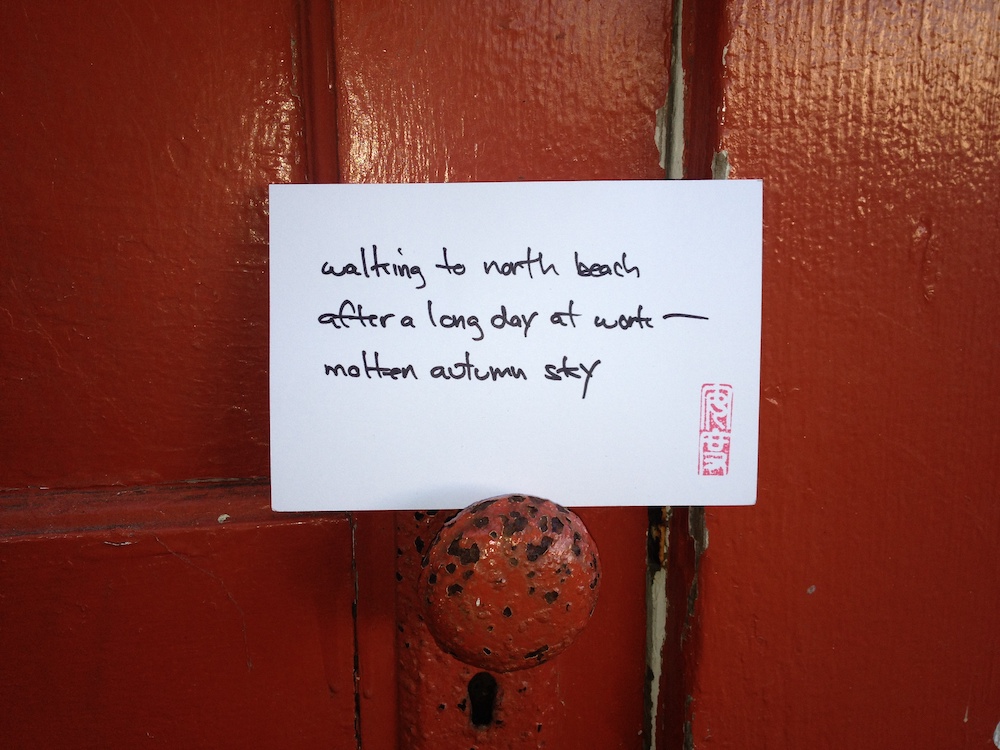 walking to north beach
after a long day at work —
molten autumn sky